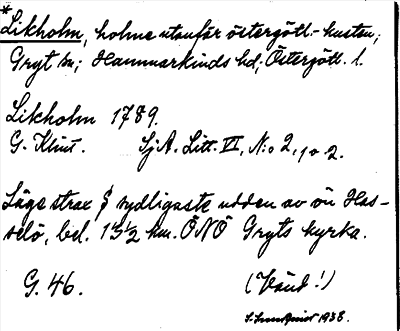 *
Likholm, holme utanför östergötl.-kusten;
Gryt sn; Hammarkinds hd; Östergötl. l.
Likholm 1789.
G. Klint. SjA. Litt. VI, N:o 2, 1 o 2.
Läge strax S sydligaste udden av ön Has-
selö, bel. 13 1/2 km. ÖNÖ Gryts kyrka.
G. 46. (Vänd!)
1938.